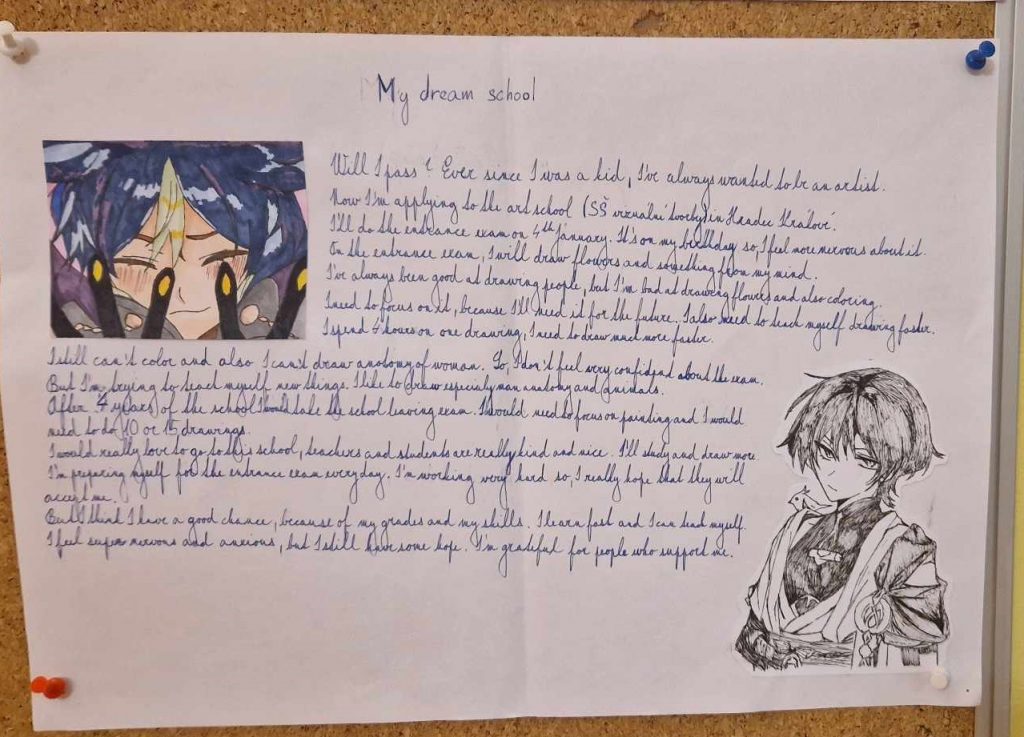 My dream school
Will I pass? Ever since I was a kid, I've always wanted to be an artist.
Now I'm applying to the art school (SŠ vizuální tvorby) in Hradec Králové.
I'll do the entrance exam on 4th January. It's on my birthday so, I feel more nervous about it.
On the entrance exam, I will draw flowers and something from my mind.
I've always been good at drawing people, but I'm bad at drawing flowers and also coloring.
I need to focus on it, because I'll need it for the future. I also need to teach myself drawing faster.
I spend 4 hours on one drawing, I need to draw much more faster.
I still can't color and also I can't draw anatomy of woman. So, I don't feel very confident about the exam.
But I'm trying to teach myself new things. I like to draw especialy man anatomy and animals.
After 4 years of the school I would take the school leaving exam. I would need to focus on painting and I would
need to do 10 or 15 drawings.
I would really love to go to this school, teachers and students are really kind and nice. I'll study and draw more.
I'm preparing myself for the entrance exam everyday. I'm working very hard so, I really hope that they will
accept me.
But I think I have a good chance, because of my grades and my skills. I learn fast and I can teach myself.
I feel super nervous and anxious, but I still have some hope. I'm grateful for people who support me.